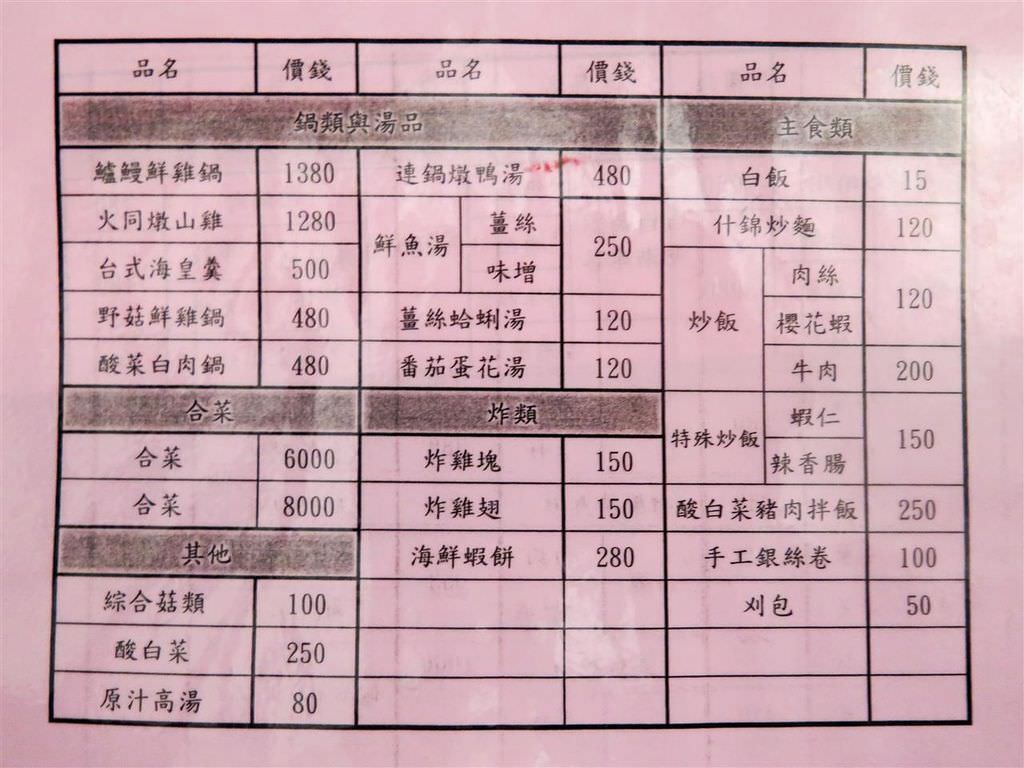 品名 價錢 品名 價錢 品名 價錢
鍋類與湯品 主食類
鱸鰻鮮雞鍋 1380 連鍋燉鴨湯 480 白飯 15
火同燉山雞 1280 鮮魚湯 薑絲 250 什錦炒麵 120
台式海皇羹 500 味增 炒飯 肉絲 120
野菇鮮雞鍋 480 薑絲蛤蜊湯 120 櫻花蝦
酸菜白肉鍋 480 番茄蛋花湯 120 牛肉 200
合菜 炸類 特殊炒飯 蝦仁 150
合菜 6000 炸雞塊 150 辣香腸
合菜 8000 炸雞翅 150 酸白菜豬肉拌飯 250
其他 海鮮蝦餅 280 手工銀絲卷 100
綜合菇類 100 刈包 50
酸白菜 250
原汁高湯 80